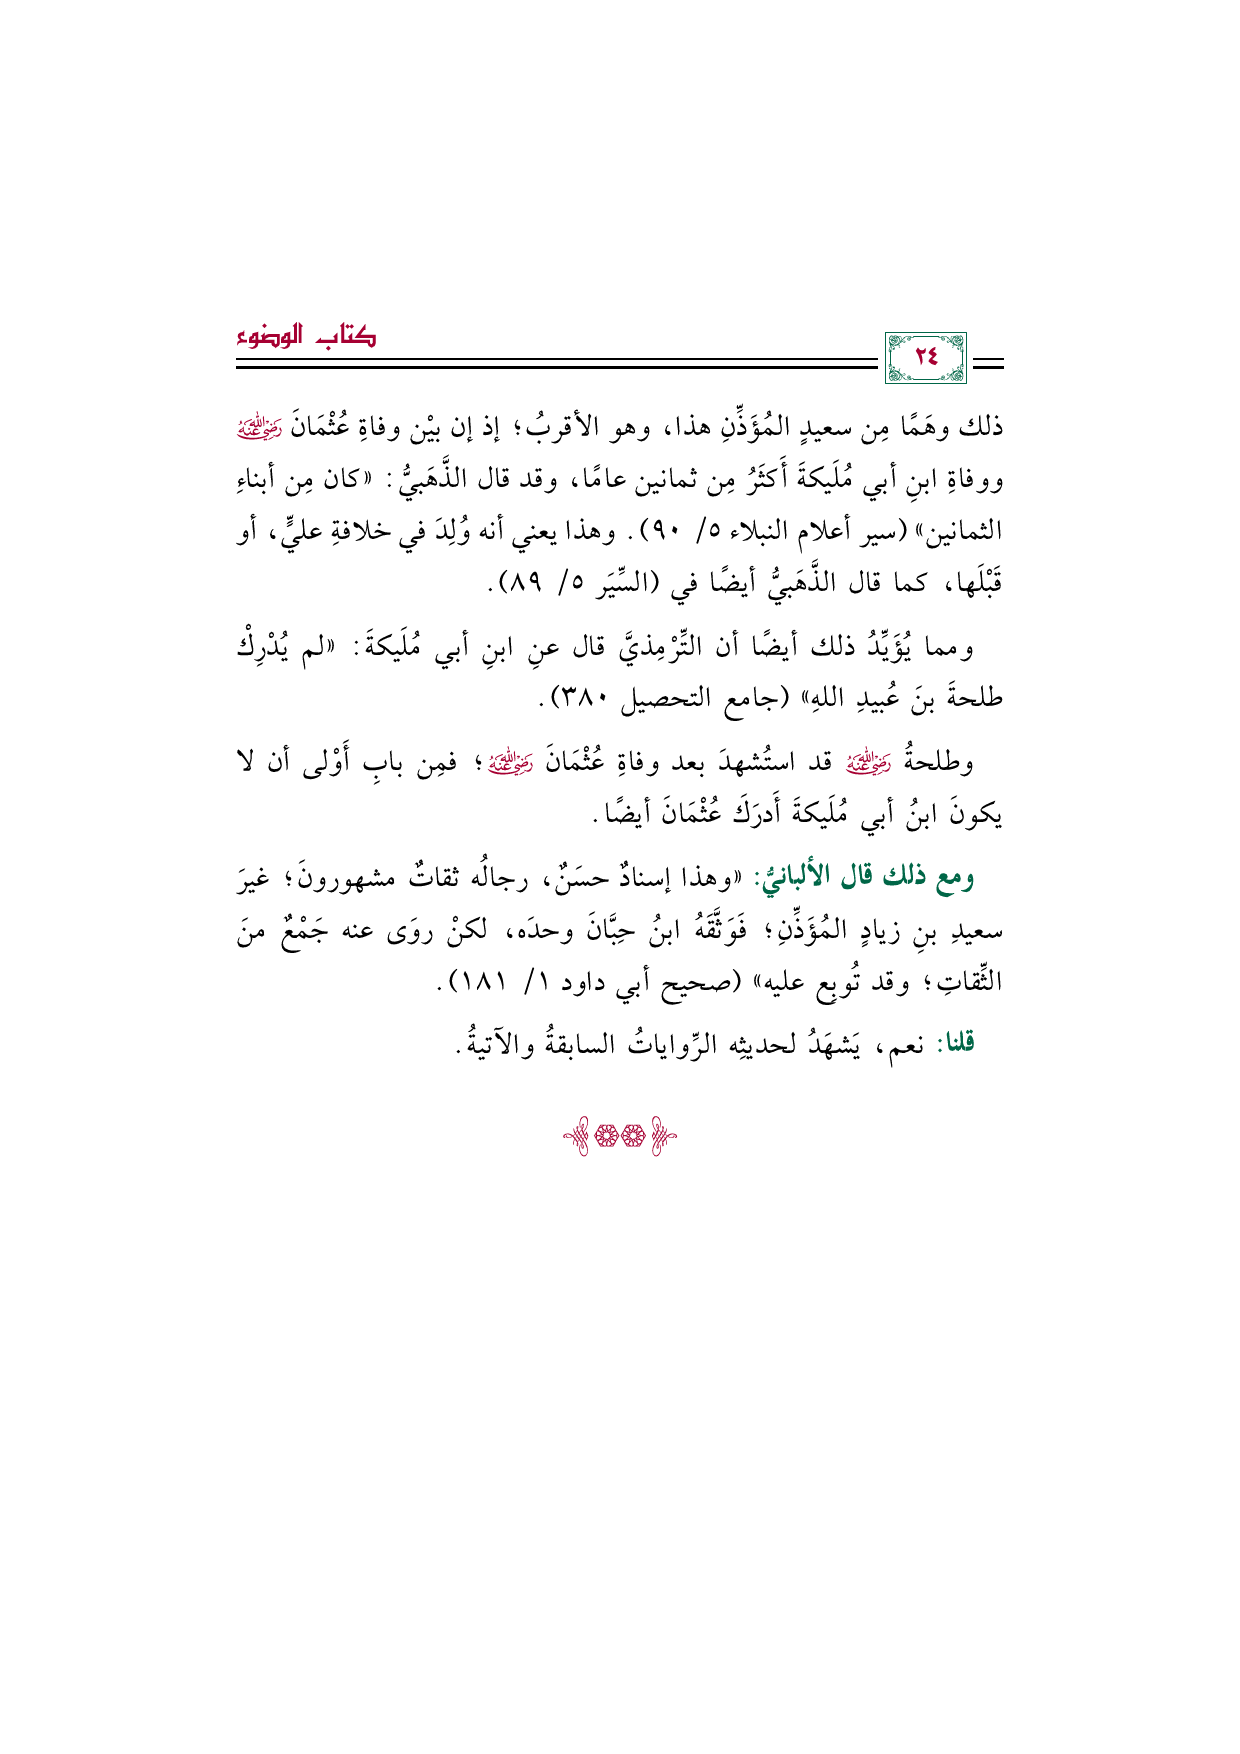 كتاب الوضوء
٢٤
ذلك وهَمًا مِن سعيدٍ المُؤَذِّنِ هذا، وهو الأقربُ؛ إذ إن بيْن وفاةِ عُثْمَانَ رضي الله عنه
ووفاةِ ابنِ أبي مُلَيكةَ أَكثَرُ مِن ثمانين عامًا، وقد قال الذَّهَبيُّ: «كان مِن أبناءِ
الثمانين» (سير أعلام النبلاء ٥/ ٩٠). وهذا يعني أنه وُلِدَ في خلافةِ عليٍّ، أو
قَبْلَها، كما قال الذَّهَبيُّ أيضًا في (السِّيَر ٥/ ٨٩).
ومما يُؤَيِّدُ ذلك أيضًا أن التِّرْمِذيَّ قال عنِ ابنِ أبي مُلَيكةَ: «لم يُدْرِكْ
طلحةَ بنَ عُبيدِ اللهِ» (جامع التحصيل ٣٨٠).
وطلحةُ رضي الله عنه قد استُشهدَ بعد وفاةِ عُثْمَانَ رضي الله عنه؛ فمِن بابِ أَوْلى أن لا
يكونَ ابنُ أبي مُلَيكةَ أَدرَكَ عُثْمَانَ أيضًا.
ومع ذلك قال الألبانيُّ: «وهذا إسنادٌ حسَنٌ، رجالُه ثقاتٌ مشهورونَ؛ غيرَ
سعيدِ بنِ زيادٍ المُؤَذِّنِ؛ فَوَثَّقَهُ ابنُ حِبَّانَ وحدَه، لكنْ روَى عنه جَمْعٌ منَ
الثِّقاتِ؛ وقد تُوبِع عليه» (صحيح أبي داود ١/ ١٨١).
قلنا: نعم، يَشهَدُ لحديثِه الرِّواياتُ السابقةُ والآتيةُ.